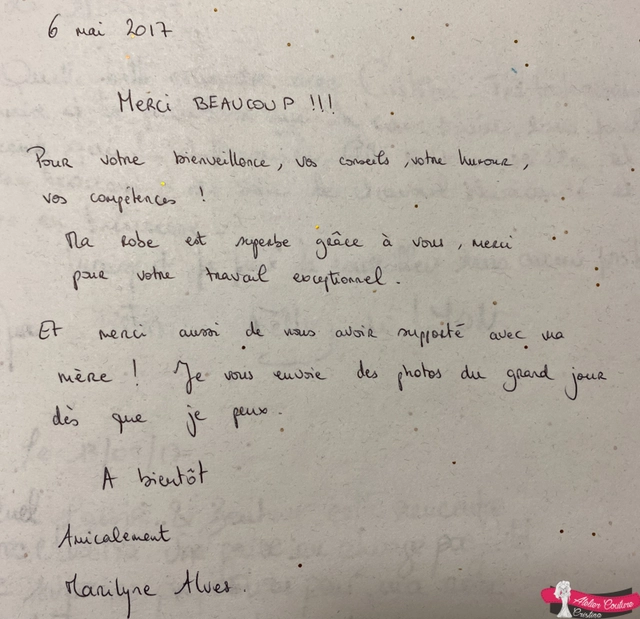 6 mai 2017
Merci BEAUCOUP !!!
Pour votre bienveillance, vos conseils, votre humour,
vos compétences !
Ma robe est superbe grâce à vous, merci
pour votre travail exceptionnel.
Et merci aussi de nous avoir supporté avec ma
mère ! Je vous envoie des photos du grand jour
dès que je peux.
A bientôt
Amicalement
Marilyne Alves.
Atelier Couture